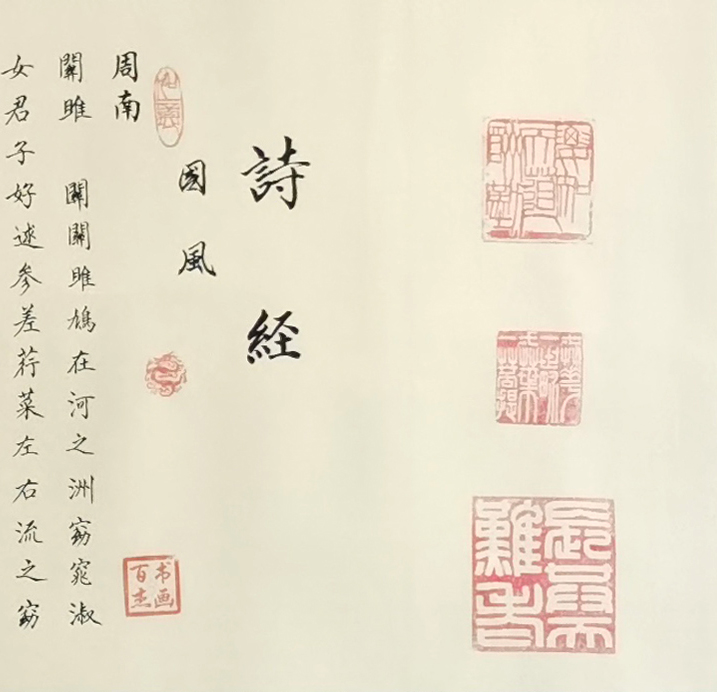 詩経
國風
书画百杰
周南
關雎 關關雎鳩在河之洲窈窕淑
女君子好逑参差荇菜左右流之窈